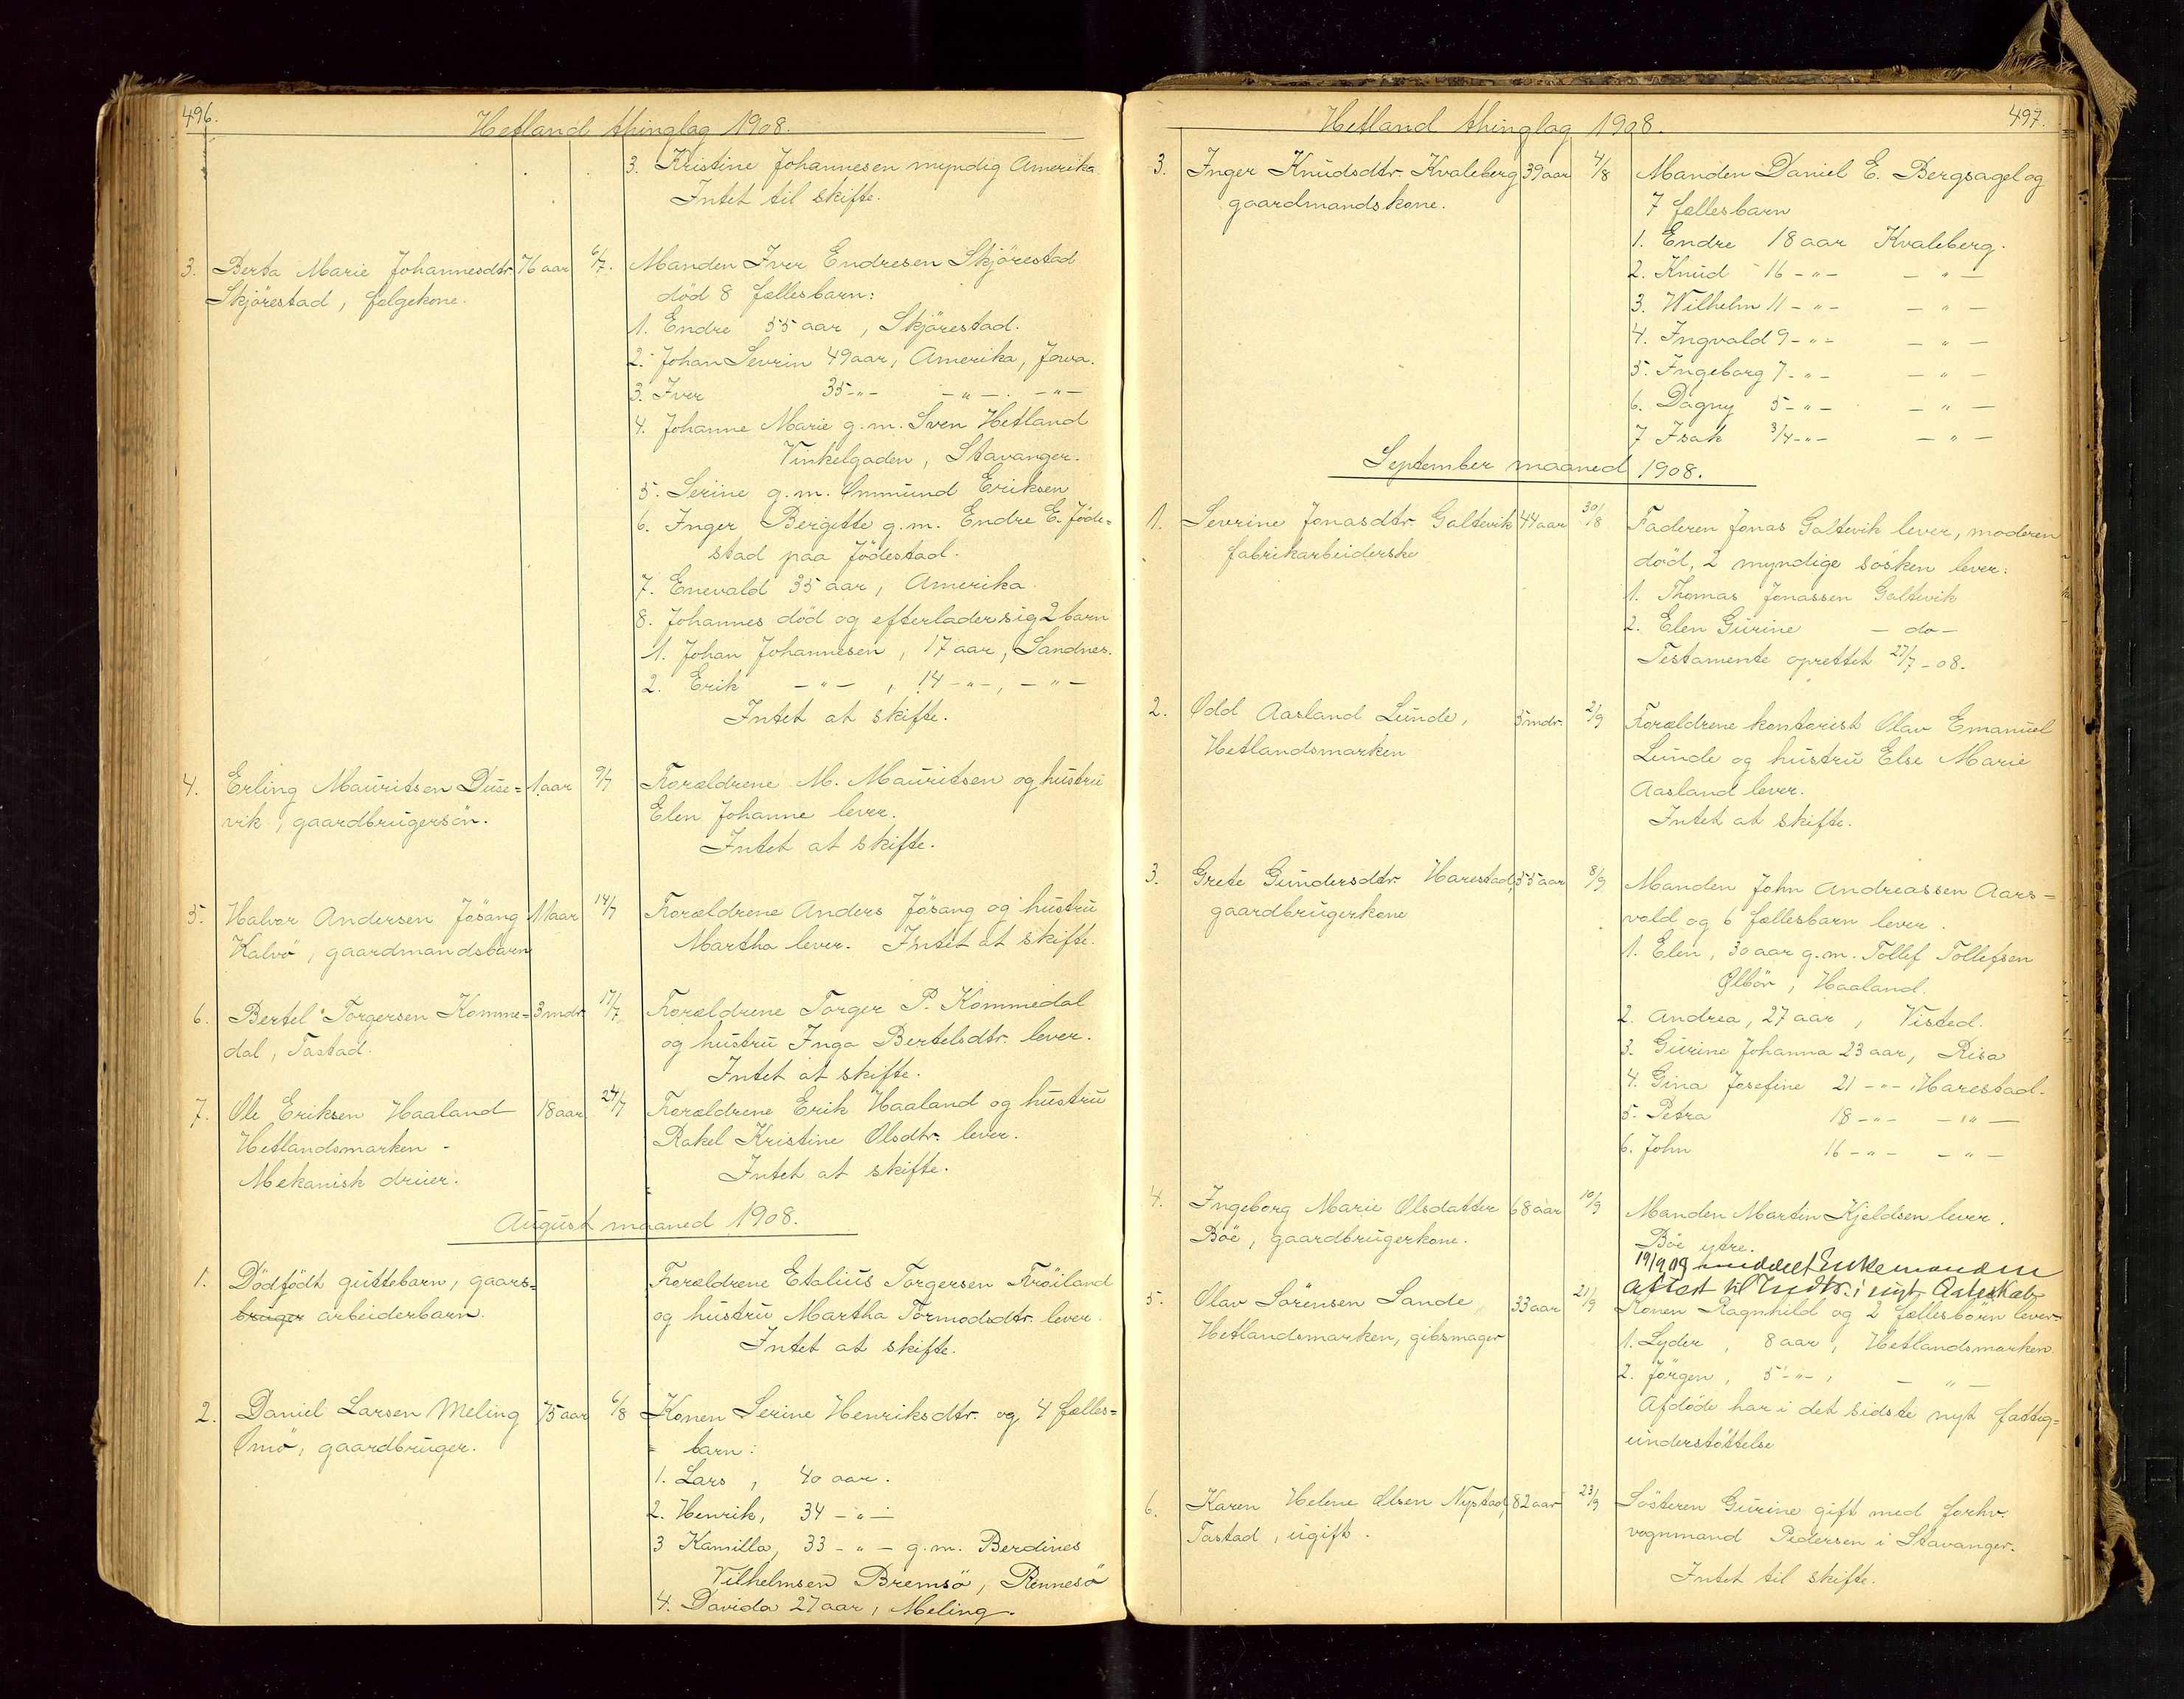 496.
Hetland thinglag 1908.
3. Kristine Johannesen myndig Amerika
Intet til skifte.
3. Berta Marie Johannesdtr. 76 aar 6/7. Manden Iver Endresen Skjörestad
Skjörestad, følgekone. död 8 fællesbarn:
1. Endre 55 aar, Skjörestad.
2. Johan Sevrin 49 aar, Amerika, Jowa.
3. Iver 35 -"- -"-. -"-
4. Johanne Marie g.m. Sven Hetland
Vinkelgaden, Stavanger.
5. Serine g.m. Ommund Eriksen
6. Inger Bergitte g.m. Endre E. Jöde=
stad paa Jödestad.
7. Enevald 35 aar, Amerika.
8. Johannes död og efterlader sig 2 barn
1. Johan Johannesen, 17 aar, Sandnes.
2. Erik -"-, 14 -"-, -"-
Intet at skifte.
4. Erling Mauritsen Duse= 1 aar 9/7 Forældrene M. Mauritsen og hustru
vik, gaardbrugersön. Elen Johanne lever.
Intet at skifte.
5. Halvor Andersen Jösang 11 aar 14/7 Forældrene Anders Jösang og hustru
Kalvö, gaardmandsbarn Martha lever. Intet at skifte.
6. Bertel Torgersen Komme= 3 mdr. 17/7 Forældrene Torger P. Kommedal
dal, Tastad. og hustru Inga Bertelsdtr. lever.
Intet at skifte.
7. Ole Eriksen Haaland 18 aar 24/7 Forældrene Erik Haaland og hustru
Hetlandsmarken - Rakel Kristine Olsdtr. lever.
Mekanisk driver. Intet at skifte.
August maaned 1908.
1. Dödfödt guttebarn, gaars= Forældrene Etalius Torgersen Fröiland
bruger arbeiderbarn. og hustru Martha Tormodsdtr. lever.
Intet at skifte.
2. Daniel Larsen Meling 75 aar 6/8 Konen Serine Henriksdtr. og 4 fælles=
Omö, gaardbruger. barn:
1. Lars, 40 aar.
2. Henrik, 34 -"-
3 Kamilla, 33 -"- g.m. Berdines
Vilhelmsen Bremsö, Rennesö
4. Davida 27 aar, Meling.
497.
Hetland thinglag 1908.
3. Inger Knudsdtr. Kvaleberg 39 aar 4/8 Manden Daniel E. Bergsagel og
gaardmandskone. 7 fællesbarn
1. Endre 18 aar Kvaleberg.
2. Knud 16 -"- -"-
3. Wilhelm 11 -"- -"-
4. Ingvald 9 -"- -"-
5. Ingeborg 7 -"- -"-
6. Dagny 5 -"- -"-
7 Isak 3/4 -"- -"-
September maaned 1908.
1. Sevrine Jonasdtr. Galtevik 44 aar 30/8 Faderen Jonas Galtevik lever, moderen
fabrikarbeiderske död, 2 myndige sösken lever:
1. Thomas Jonassen Galtevik
2. Elen Gurine - do -
Testamente oprettet 27/7 - 08.
2. Odd Aasland Lunde, 5 mdr. 2/9 Forældrene kontorist Olav Emanuel
Hetlandsmarken Lunde og hustru Else Marie
Aasland lever.
Intet at skifte.
3. Grete Gundersdtr. Harestad, 55 aar 8/9 Manden John Andreassen Aars=
gaardbrugerkone vold og 6 fællesbarn lever.
1. Elen, 30 aar g.m. Tollef Tollefsen
Ølbör, Haaland.
2. Andrea, 27 aar, Visted.
3. Gurine Johanna 23 aar, Risa
4. Gina Josefine 21 -"-, Harestad.
5. Petra 18 -"- -"-
6. John 16 -"- -"-
4. Ingeborg Marie Olsdatter 68 aar 10/9 Manden Martin Kjeldsen lever.
Böe, gaardbrugerkone. Böe ytre.
19/9 09 meddelt Enkemanden
Attest til Indtr. i nyt Ægteskab
5. Olav Sörensen Sande 33 aar 21/9 Konen Ragnhild og 2 fællesbörn lever
Hetlandsmarken, gibsmager 1. Lyder, 8 aar, Hetlandsmarken
2. Jörgen, 5 -"-, -"-
Afdöde har i det sidste nyt fattig=
understöttelse
6. Karen Helene Olsen Nystad, 82 aar 23/9 Sösteren Gurine gift med forhv.
Tastad, ugift. vognmand Pedersen i Stavanger.
Intet til skifte.